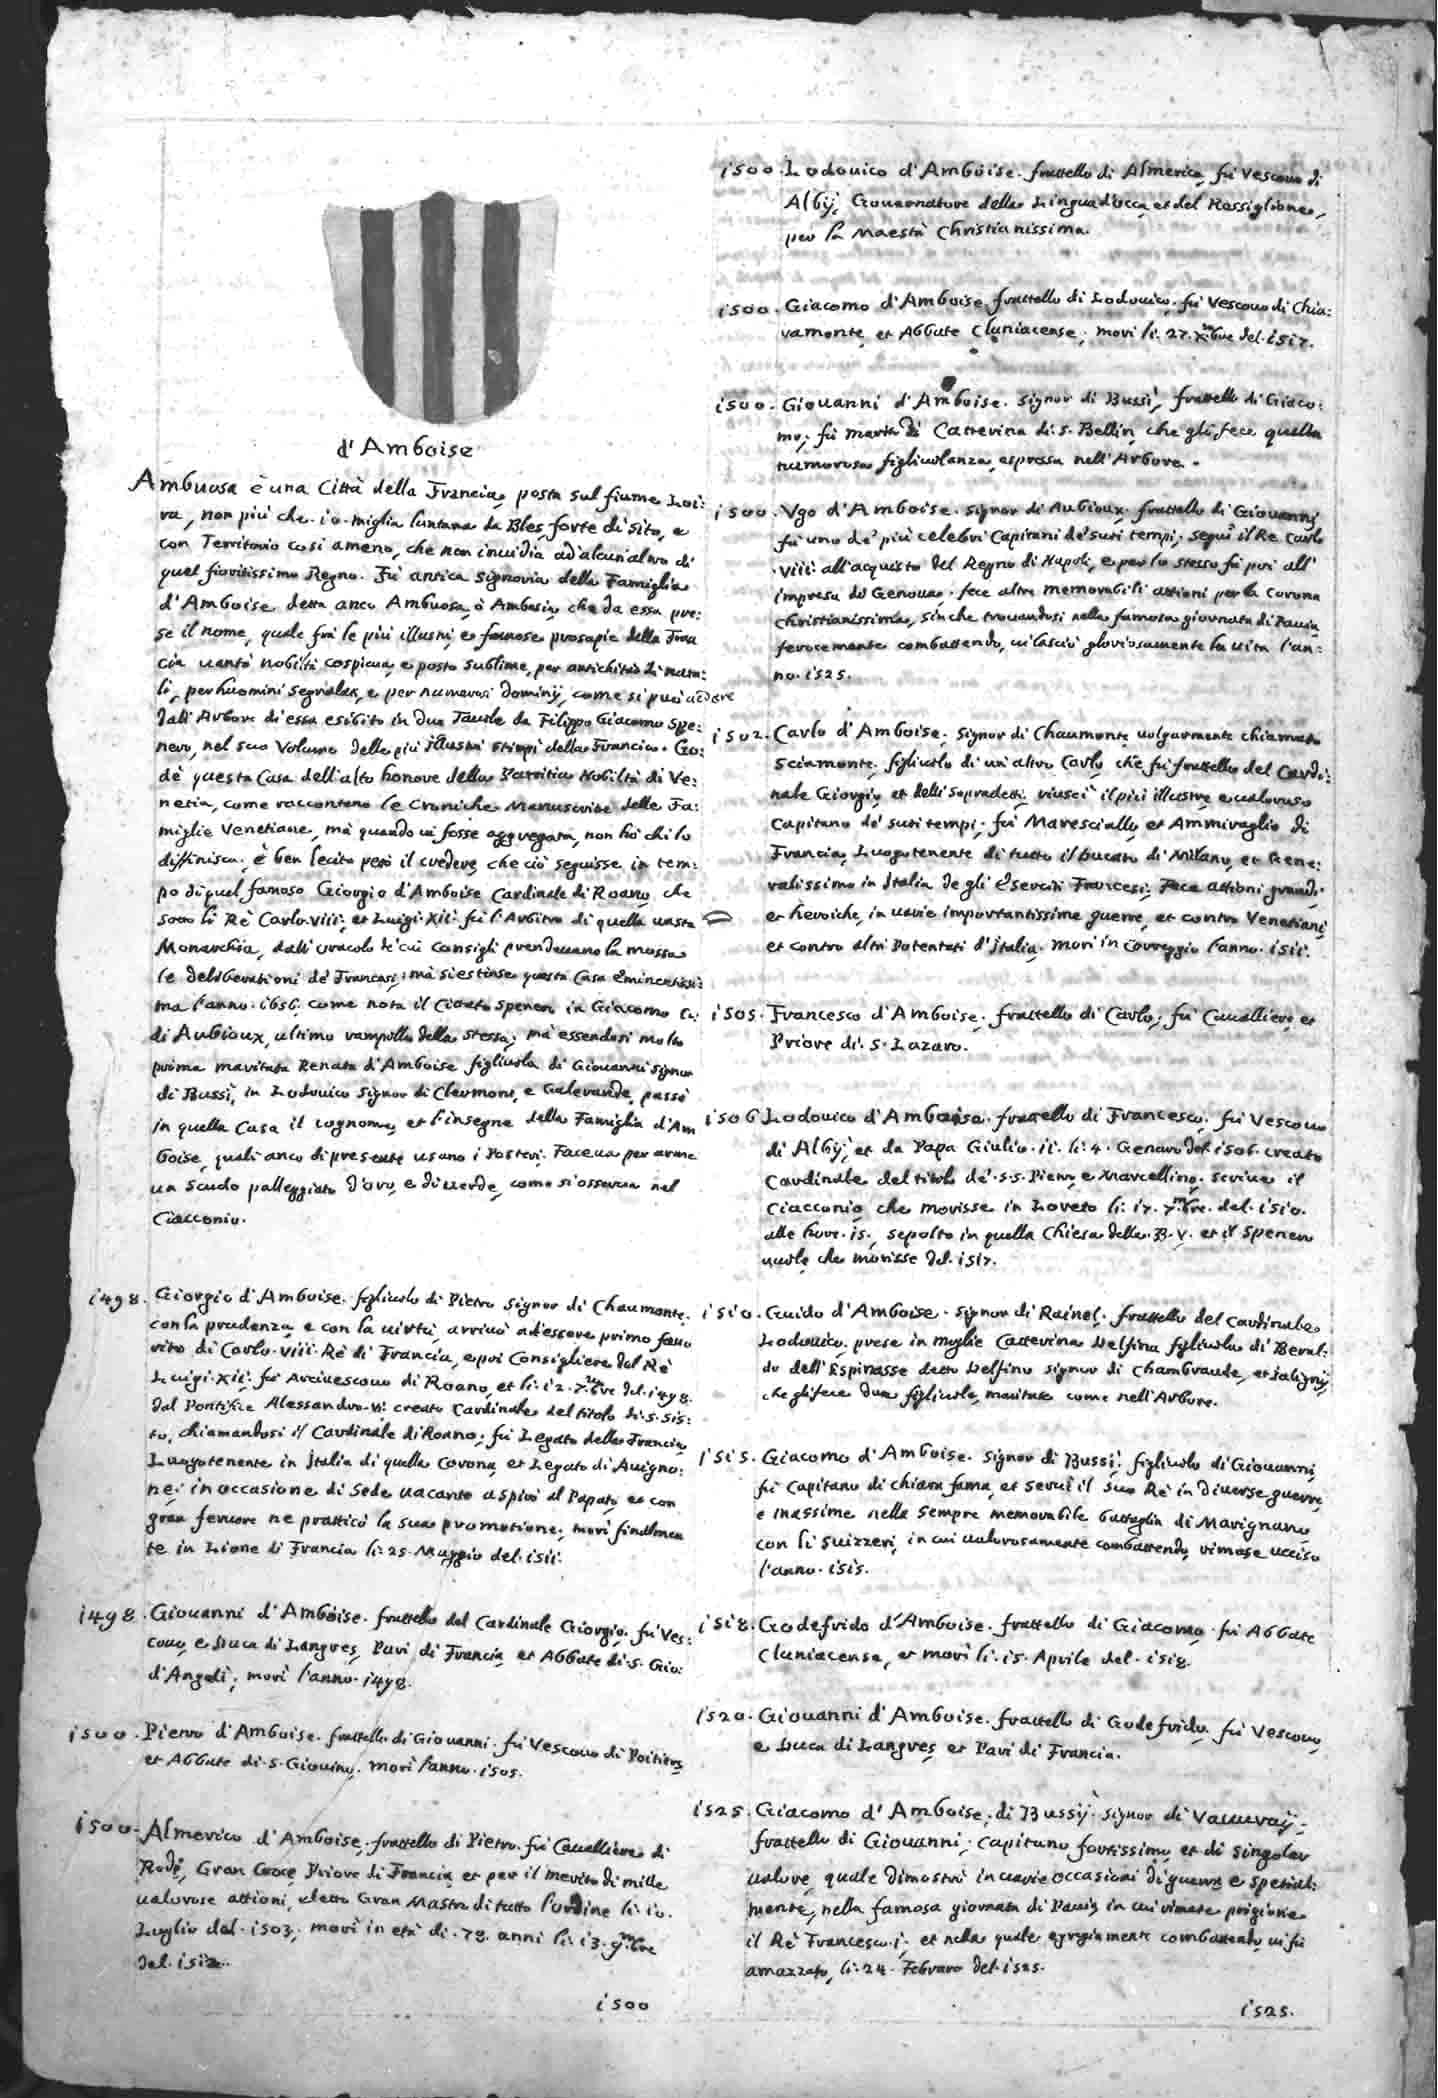 d'Amboise
Ambuosa è una Città della Francia, posta sul fiume Loi:
ra, non più che .10. miglia luntana da Bles, forte di sito, e
con Territorio così ameno, che non inuidia ad alcun'altro di
quel fioritissimo Regno. Fù antica signoria della Famiglia
d'Amboise detta anco Ambuosa, ò Ambasia, che da essa pre:
se il nome, quale frà le più illustri, e famose prosapie della Fran
cia uanta nobiltà cospicua, e posto sublime, per antichità di nata:
li, per huomini segnalati, e per numerosi dominij, come si può uedere
dall'Arbore di essa esibito in due Tauole da Filippo Giacomo Spe:
nero, nel suo Volume delle più illustri stirpi della Francia. Go:
dè questa Casa dell'alto honore della Patritia Nobiltà di Ve:
netia, come raccontano le Croniche Manuscritte delle Fa:
miglie Venetiane, mà quando ui fosse aggregata, non hò chi lo
diffinisca; è ben lecito però il credere, che ciò seguisse in tem:
po di quel famoso Giorgio d'Amboise Cardinale di Roano, che
sotto li Rè Carlo .viii., et Luigi .xii. fù l'Arbitro di quella uasta
Monarchia, dall'oracolo de' cui consigli prendeuano la mossa
le deliberationi de' Francesi; mà si estinse questa Casa eminentissi:
ma l'anno .1656. come nota il citato Spenero in Giacomo Co:
di Aubioux, ultimo rampollo della stessa; mà essendosi molto
prima maritata Renata d'Amboise figliuola di Giouanni signor
di Bussì, in Lodouico signor di Clermont, e Galerande, passò
in quella Casa il cognome, et l'insegne della Famiglia d'Am
boise, quali anco di presente usano i Posteri. Faceua per arme
un scudo palleggiato d'oro, e di uerde, come si osserua nel
Ciacconio.
1498. Giorgio d'Amboise. figliuolo di Pietro signor di Chaumonte.
con la prudenza, e con la uirtù, arriuò ad essere primo fauo
rito di Carlo .viii. Rè di Francia, e poi Consigliere del Rè
Luigi .xii. fù Arciuescouo di Roano, et li .12. Xmbre del .1498.
dal Pontifice Alessandro .vi. creato Cardinale del titolo di .S. Sis:
to, chiamandosi il Cardinale di Roano; fù Legato della Francia,
Luogotenente in Italia di quella Corona, et Legato di Auigno:
ne; in occasione di Sede uacante aspirò al Papato, et con
gran feruore ne pratticò la sua promotione; morì finalmen
te in Lione di Francia li .25. Maggio del .1511.
1498. Giouanni d'Amboise. fratello del Cardinale Giorgio. fù Ves:
couo, e Duca di Langres, Pari di Francia, et Abbate di .S. Gio:
d'Angelì; morì l'anno .1498.
1500. Pietro d'Amboise. fratello di Giouanni. fù Vescouo di Poitiers,
et Abbate di .S. Giouino. morì l'anno .1505.
1500. Almerico d'Amboise. fratello di Pietro. fù Caualliere di
Rodi, Gran Croce, Priore di Francia, et per il merito di mille
ualorose attioni, eletto Gran Mastro di tutto l'ordine li .10.
Luglio del .1503; morì in età di .78. anni li .13. 9mbre
del .1512.
1500
1500. Lodouico d'Amboise. fratello di Almerico, fù Vescouo di
Albij, Gouernatore della Linguad'occa, et del Rossiglione,
per la Maestà Christianissima.
1500. Giacomo d'Amboise. fratello di Lodouico. fù Vescouo di Chia:
ramonte, et Abbate Cluniacense; morì li. 27. Xmbre del .1517.
1500. Giouanni d'Amboise. signor di Bussì, fratello di Giaco:
mo; fù marito di Catterina di .S. Bellin, che gli fece quella
numerosa figliuolanza, espressa nell'Arbore.
1500. Vgo d'Amboise. signor di Aubioux. fratello di Giouanni
fù uno de' più celebri Capitani de' suoi tempi; seguì il Re Carlo
.viii. all'acquisto del Regno di Napoli, e per lo stesso fù poi all'
impresa di Genoua; fece altre memorabili attioni per la Corona
Christianissima, sinche trouandosi nella famosa giornata di Pauia,
ferocemente combattendo, ui lasciò gloriosamente la uita l'an:
no .1525.
1502. Carlo d'Amboise. Signor di Chaumonte, uolgarmente chiamato
Sciamonte. figliuolo di un'altro Carlo, che fù fratello del Cardi:
nale Giorgio, et delli sopradetti, riuscì il più illustre, e ualoroso
Capitano de' suoi tempi. fù Maresciallo, et Ammiraglio di
Francia, Luogotenente di tutto il Ducato di Milano, et Gene:
ralissimo in Italia de gli Eserciti Francesi; Fece attioni grandi
et heroiche, in uarie importantissime guerre, et contro Venetiani,
et contro altri Potentati d'Italia. morì in Correggio l'anno .1511.
1505. Francesco d'Amboise. fratello di Carlo; fù Caualliere, et
Priore di .S. Lazaro.
1506 Lodouico d'Amboise. fratello di Francesco. fù Vescouo
di Albij, et da Papa Giulio .ii. li .4. Genaro del .1506. creato
Cardinale del titolo de' .S.S. Pietro, e Marcellino. scriue il
Ciacconio, che morisse in Loreto li .17. 7mbre. del .1510.
alle hore .15., sepolto in quella Chiesa della .B.V. et il Spenero
uuole, che morisse del .1517.
1510. Guido d'Amboise. signor di Rainel. fratello del Cardinale
Lodouico. prese in moglie Catterina Delfina figliuola di Beral:
do dell'Espinasse detto Delfino signor di Chambraude, et Ialigny,
che gli fece due figliuole, maritate come nell'Arbore.
1515. Giacomo d'Amboise. signor di Bussì. figliuolo di Giouanni,
fù Capitano di chiara fama, et seruì il suo Rè in diuerse guerre,
e massime nella sempre memorabile battaglia di Marignano
con li Suizzeri, in cui ualorosamente combattendo, rimase ucciso
l'anno .1515.
1518. Godefrido d'Amboise. fratello di Giacomo. fù Abbate
Cluniacense, et morì li .15. Aprile del .1518.
1520. Giouanni d'Amboise. fratello di Godefrido. fù Vescouo,
e Duca di Langres, et Pari di Francia.
1525. Giacomo d'Amboise. di Bussÿ signor di Vauuraÿ.
fratello di Giouanni; Capitano fortissimo, et di singolar
ualore, quale dimostrò in uarie occasioni di guerra, e spetial:
mente, nella famosa giornata di Pauia, in cui rimase prigione
il Rè Francesco .i., et nella quale egregiamente combattendo, ui fù
amazzato, li .24. Febraro del .1525.
1525.